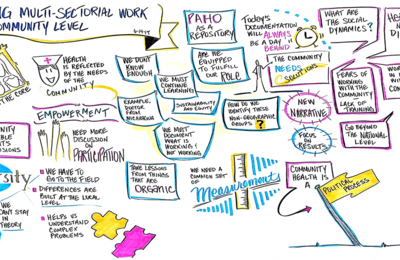 NG MULTI-SECTORIAL WORK
OMMUNITY LEVEL
HEALTH
IS REFLECTED
BY THE
NEEDS
OF THE
COMMUNITY
THE CORE
EMPOWERMENT
NEED MORE
DISCUSSION
ON
PARTICIPATION
WE HAVE TO
GO TO THE FIELD
DIFFERENCES ARE
BUILT AT THE LOCAL
LEVEL
HELPS US
UNDERSTAND
COMPLEX
PROBLEMS
WE
STAY IN
THEORY
PAHO
AS A
REPOSITORY
WE DON'T
KNOW
ENOUGH
ARE WE
EQUIPPED
TO FULFILL
OUR
ROLE
WE MUST
CONTINUE
LEARNING
EXAMPLE,
DOCTOR
FROM
NICARAGUA
SUSTAINABILITY AND EQUITY
WE MUST
DOCUMENT
WHAT IS
WORKING?
NOT WORKING
TAKE LESSONS
FROM THINGS
THAT ARE
ORGANIC
TODAY'S
DOCUMENTATION
WILL
ALWAYS
BE A DAY
BEHIND
THE COMMUNITY
NEEDS
SOLUTIONS
HOW DO WE
IDENTIFY THESE
NON-GEOGRAPHIC
GROUPS?
WE NEED A
COMMON SET
OF
Measurements
WHAT ARE
THE SOCIAL
DYNAMICS?
FEARS OF
WORKING
WITH THE
COMMUNITY
LACK OF
TRAINING
NEW
NARRATIVE
FOCUS
ON
RESULTS
GO BEYOND
THE NATIONAL
LEVEL
COMMUNITY
HEALTH IS
A
POLITICAL
PROCESS